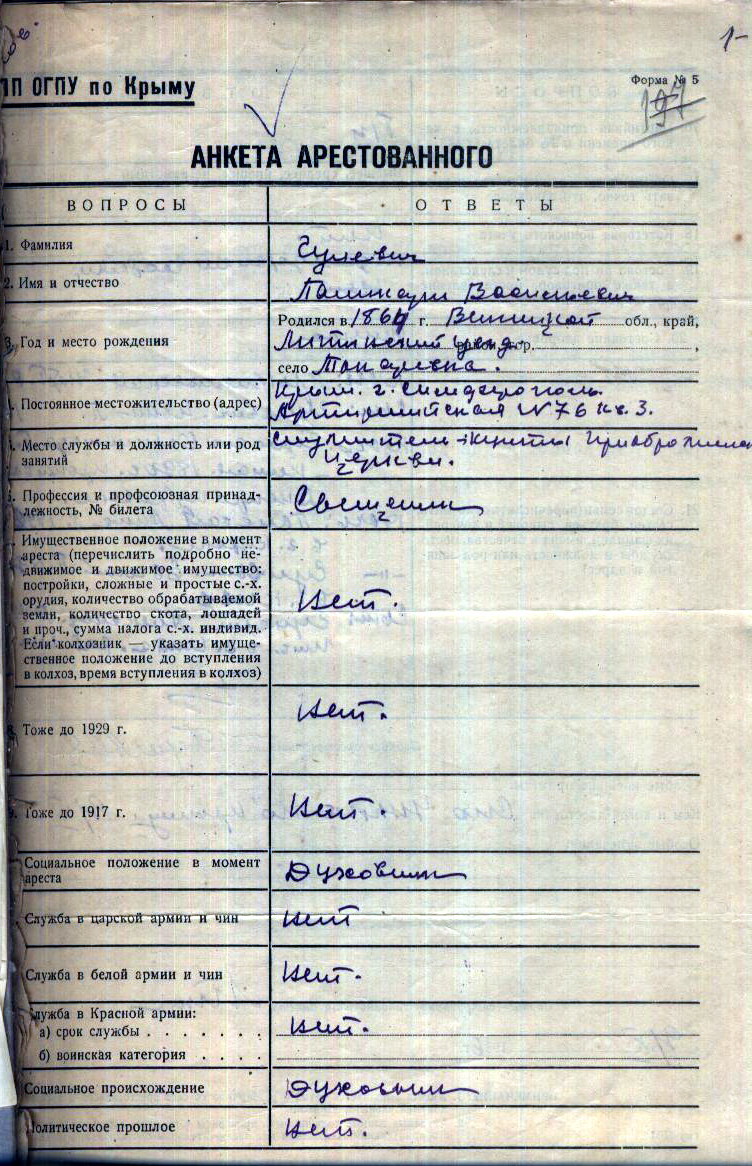 1-
ПП ОГПУ по Крыму
Форма № 5
197
АНКЕТА АРЕСТОВАННОГО
ВОПРОСЫ
ОТВЕТЫ
1. Фамилия
Гулевич
2. Имя и отчество
Васильевич
3. Год и место рождения
Родился в 1864 г. Винницкой обл., край,
Литинский уезд. район, гор.
село
4. Постоянное местожительство (адрес)
Крым. г. Симферополь.
№ 76 кв. 3.
Место службы и должность или род
занятий
служитель
церкви.
Профессия и профсоюзная принад-
лежность, № билета
Священник
Имущественное положение в момент
ареста (перечислить подробно не-
движимое и движимое имущество:
постройки, сложные и простые с.-х.
орудия, количество обрабатываемой
земли, количество скота, лошадей
и проч., сумма налога с.-х. индивид.
Если колхозник — указать имуще-
ственное положение до вступления
в колхоз, время вступления в колхоз)
Нет.
8. Тоже до 1929 г.
Нет.
9. Тоже до 1917 г.
Нет.
Социальное положение в момент
ареста
Духовник
Служба в царской армии и чин
Нет
Служба в белой армии и чин
Нет.
Служба в Красной армии:
а) срок службы . . . . . . .
Нет.
б) воинская категория . . . .
Социальное происхождение
Духовник
Политическое прошлое
Нет.